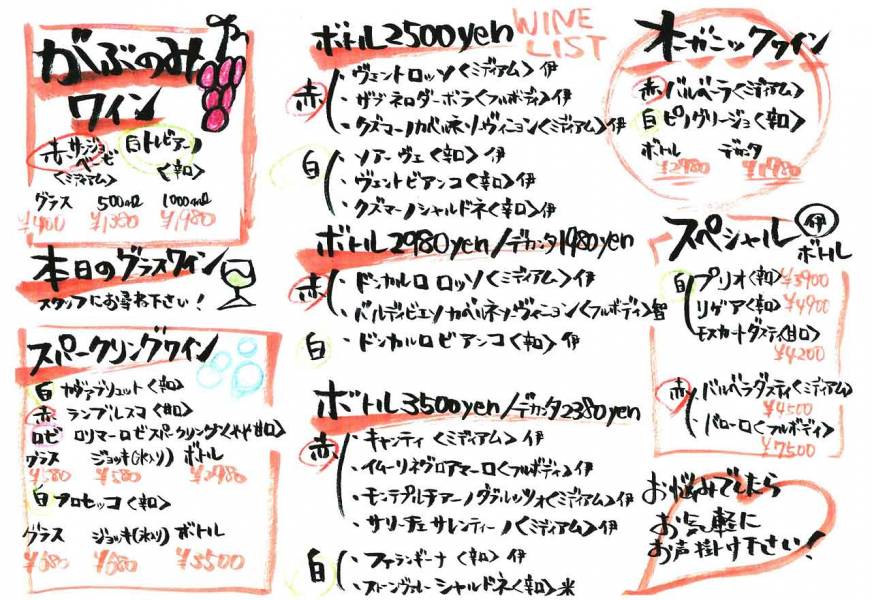 がぶのみ
ワイン
赤 サンジョベーゼ
<ミディアム>
白 トレビアーノ
<辛口>
グラス 500ml 1000ml
¥400 ¥1380 ¥1980
本日のグラスワイン
スタッフにお尋ね下さい!
スパークリングワイン
白 カヴァブリュット<辛口>
赤 ランブレスコ<甘口>
ロゼ ロリマーロゼスパークリング<やや甘口>
グラス ジョッキ(氷入り) ボトル
¥580 ¥580 ¥2980
白 プロセッコ<辛口>
グラス ジョッキ(氷入り) ボトル
¥680 ¥680 ¥3500
WINE
LIST
ボトル2500yen
赤
・ヴェントロッソ<ミディアム>伊
・ザブネロダーボラ<フルボディ>伊
・クズマーノカベルネソーヴィニヨン<ミディアム>伊
白
・ソアーヴェ<辛口>伊
・ヴェントビアンコ<辛口>伊
・クズマーノシャルドネ<辛口>伊
ボトル2980yen/デカンタ1980yen
赤
・ドンカルロロッソ<ミディアム>伊
・バルディビエソカベルネソーヴィニヨン<フルボディ>智
白
・ドンカルロビアンコ<辛口>伊
ボトル3500yen/デカンタ2380yen
赤
・キャンティ<ミディアム>伊
・イムーリネグロアマーロ<フルボディ>伊
・モンテプルチアーノダブルッツォ<ミディアム>伊
・サリーチェサレンティーノ<ミディアム>伊
白
・ファランギーナ<辛口>伊
・ストーンヴァレーシャルドネ<辛口>米
オーガニックワイン
赤 バルベーラ<ミディアム>
白 ピノグリージョ<辛口>
ボトル デカンタ
¥2980 ¥1980
スペシャル 伊
ボトル
白
プリオ<辛口> ¥3900
リゲア<辛口> ¥4900
モスカートダスティ<甘口>
¥4200
赤
・バルベラダスティ<ミディアム>
¥4500
・バローロ<フルボディ>
¥7500
お悩みでしたら
お気軽に
お声掛け下さい!